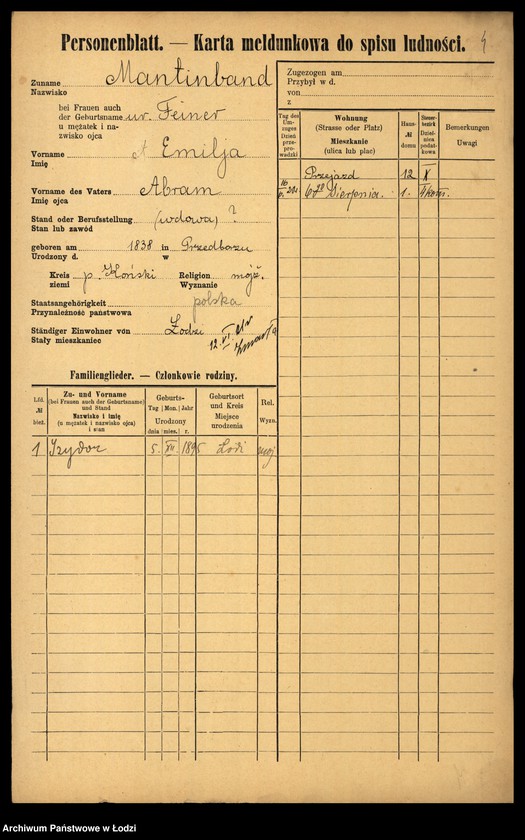 Personenblatt. — Karta meldunkowa do spisu ludności. 4
Zuname Mantinband
Nazwisko
bei Frauen auch
der Geburtsname ur. Feiner
u mężatek i na-
zwisko ojca
Vorname Emilja
Imię
Vorname des Vaters Abram
Imię ojca
Stand oder Berufsstellung (wdowa) ?
Stan lub zawód
geboren am 1838 in Przedborzu
Urodzony d. w
Kreis p. Koński Religion mojż.
ziemi Wyznanie
Staatsangehörigkeit polska
Przynależność państwowa
Ständiger Einwohner von Łodzi
Stały mieszkaniec
12. VI. zmarła
Familienglieder. — Członkowie rodziny.
Lfd. № bież.
Zu- und Vorname
(bei Frauen auch der Geburtsname)
und Stand
Nazwisko i imię
(u mężatek i nazwisko ojca)
i stan
Geburts-
Tag Mon. Jahr
Urodzony
dnia mies. r.
Geburtsort
und Kreis
Miejsce
urodzenia
Rel.
Wyzn.
1 Izydor 5. XII. 1895 Łódź moj
Zugezogen am
Przybył w d.
von
z
Tag des Um-
zuges
Dzień
prze-
prowadzki
Wohnung
(Strasse oder Platz)
Mieszkanie
(ulica lub plac)
Haus-
№
domu
Steuer-
bezirk
Dziel-
nica
podat-
kowa
Bemerkungen
Uwagi
Przejazd 12 X
6go Sierpnia. 1. kom.
Archiwum Państwowe w Łodzi